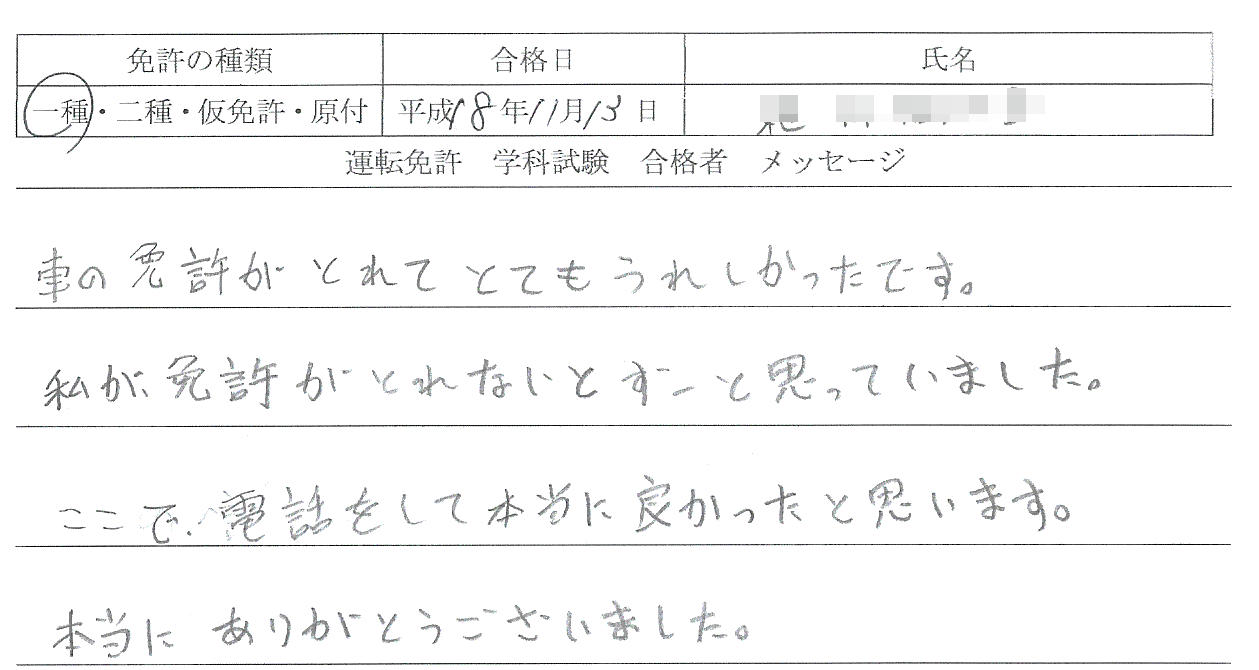 免許の種類 合格日 氏名
一種・二種・仮免許・原付 平成18年11月13日
運転免許 学科試験 合格者 メッセージ
車の免許がとれてとてもうれしかったです。
私が免許がとれないとずーと思っていました。
ここで、電話をして本当に良かったと思います。
本当にありがとうございました。